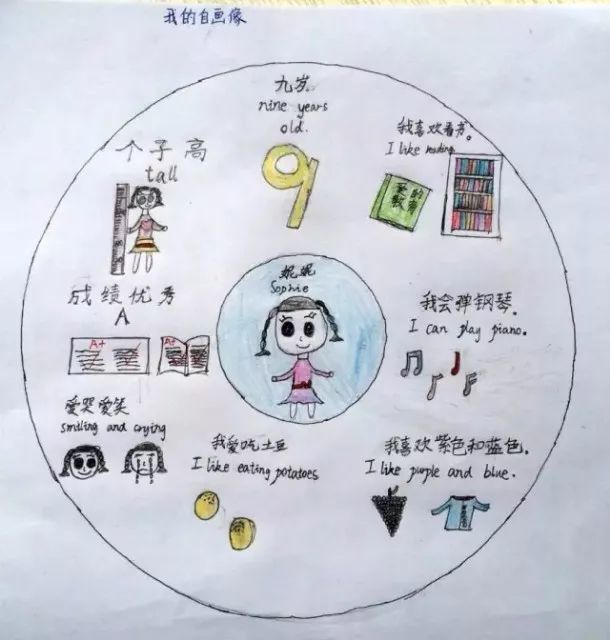 我的自画像
九岁
nine years
old.
9
我喜欢看书。
I like reading
个子高
tall
成绩优秀
A
A+
A+
妮妮
Sophie
我会弹钢琴。
I can play piano.
爱哭爱笑
smiling and crying
我爱吃土豆
I like eating potatoes
我喜欢紫色和蓝色。
I like purple and blue.